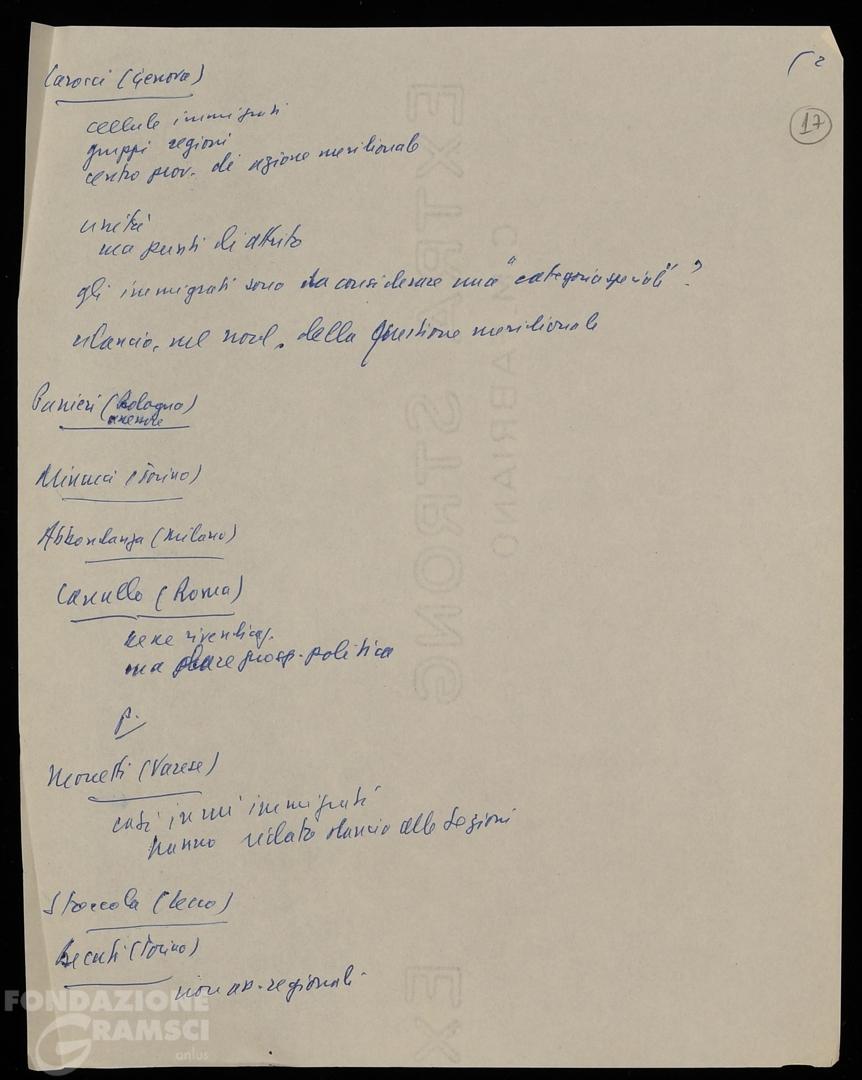 (2
17
Carocci (Genova)
cellule immigrati
gruppi regioni
centro prov. di azione meridionale
unità
ma punti di attrito
gli immigrati sono da considerare una "categoria speciale"?
rilancio, nel nord, della Questione meridionale
Panieri (Bologna)
Minucci (Torino)
Abbondanza (Milano)
Canullo (Roma)
bene rivendicaz.
ma dare prosp. politica
p.
Monetti (Varese)
casi in cui immigrati
hanno ridato slancio alle Sezioni
Stoccola (Lecco)
Becuti (Torino)
non ass. regionali
EXTRA STRONG
C.M. FABRIANO
EX
FONDAZIONE
GRAMSCI
onlus